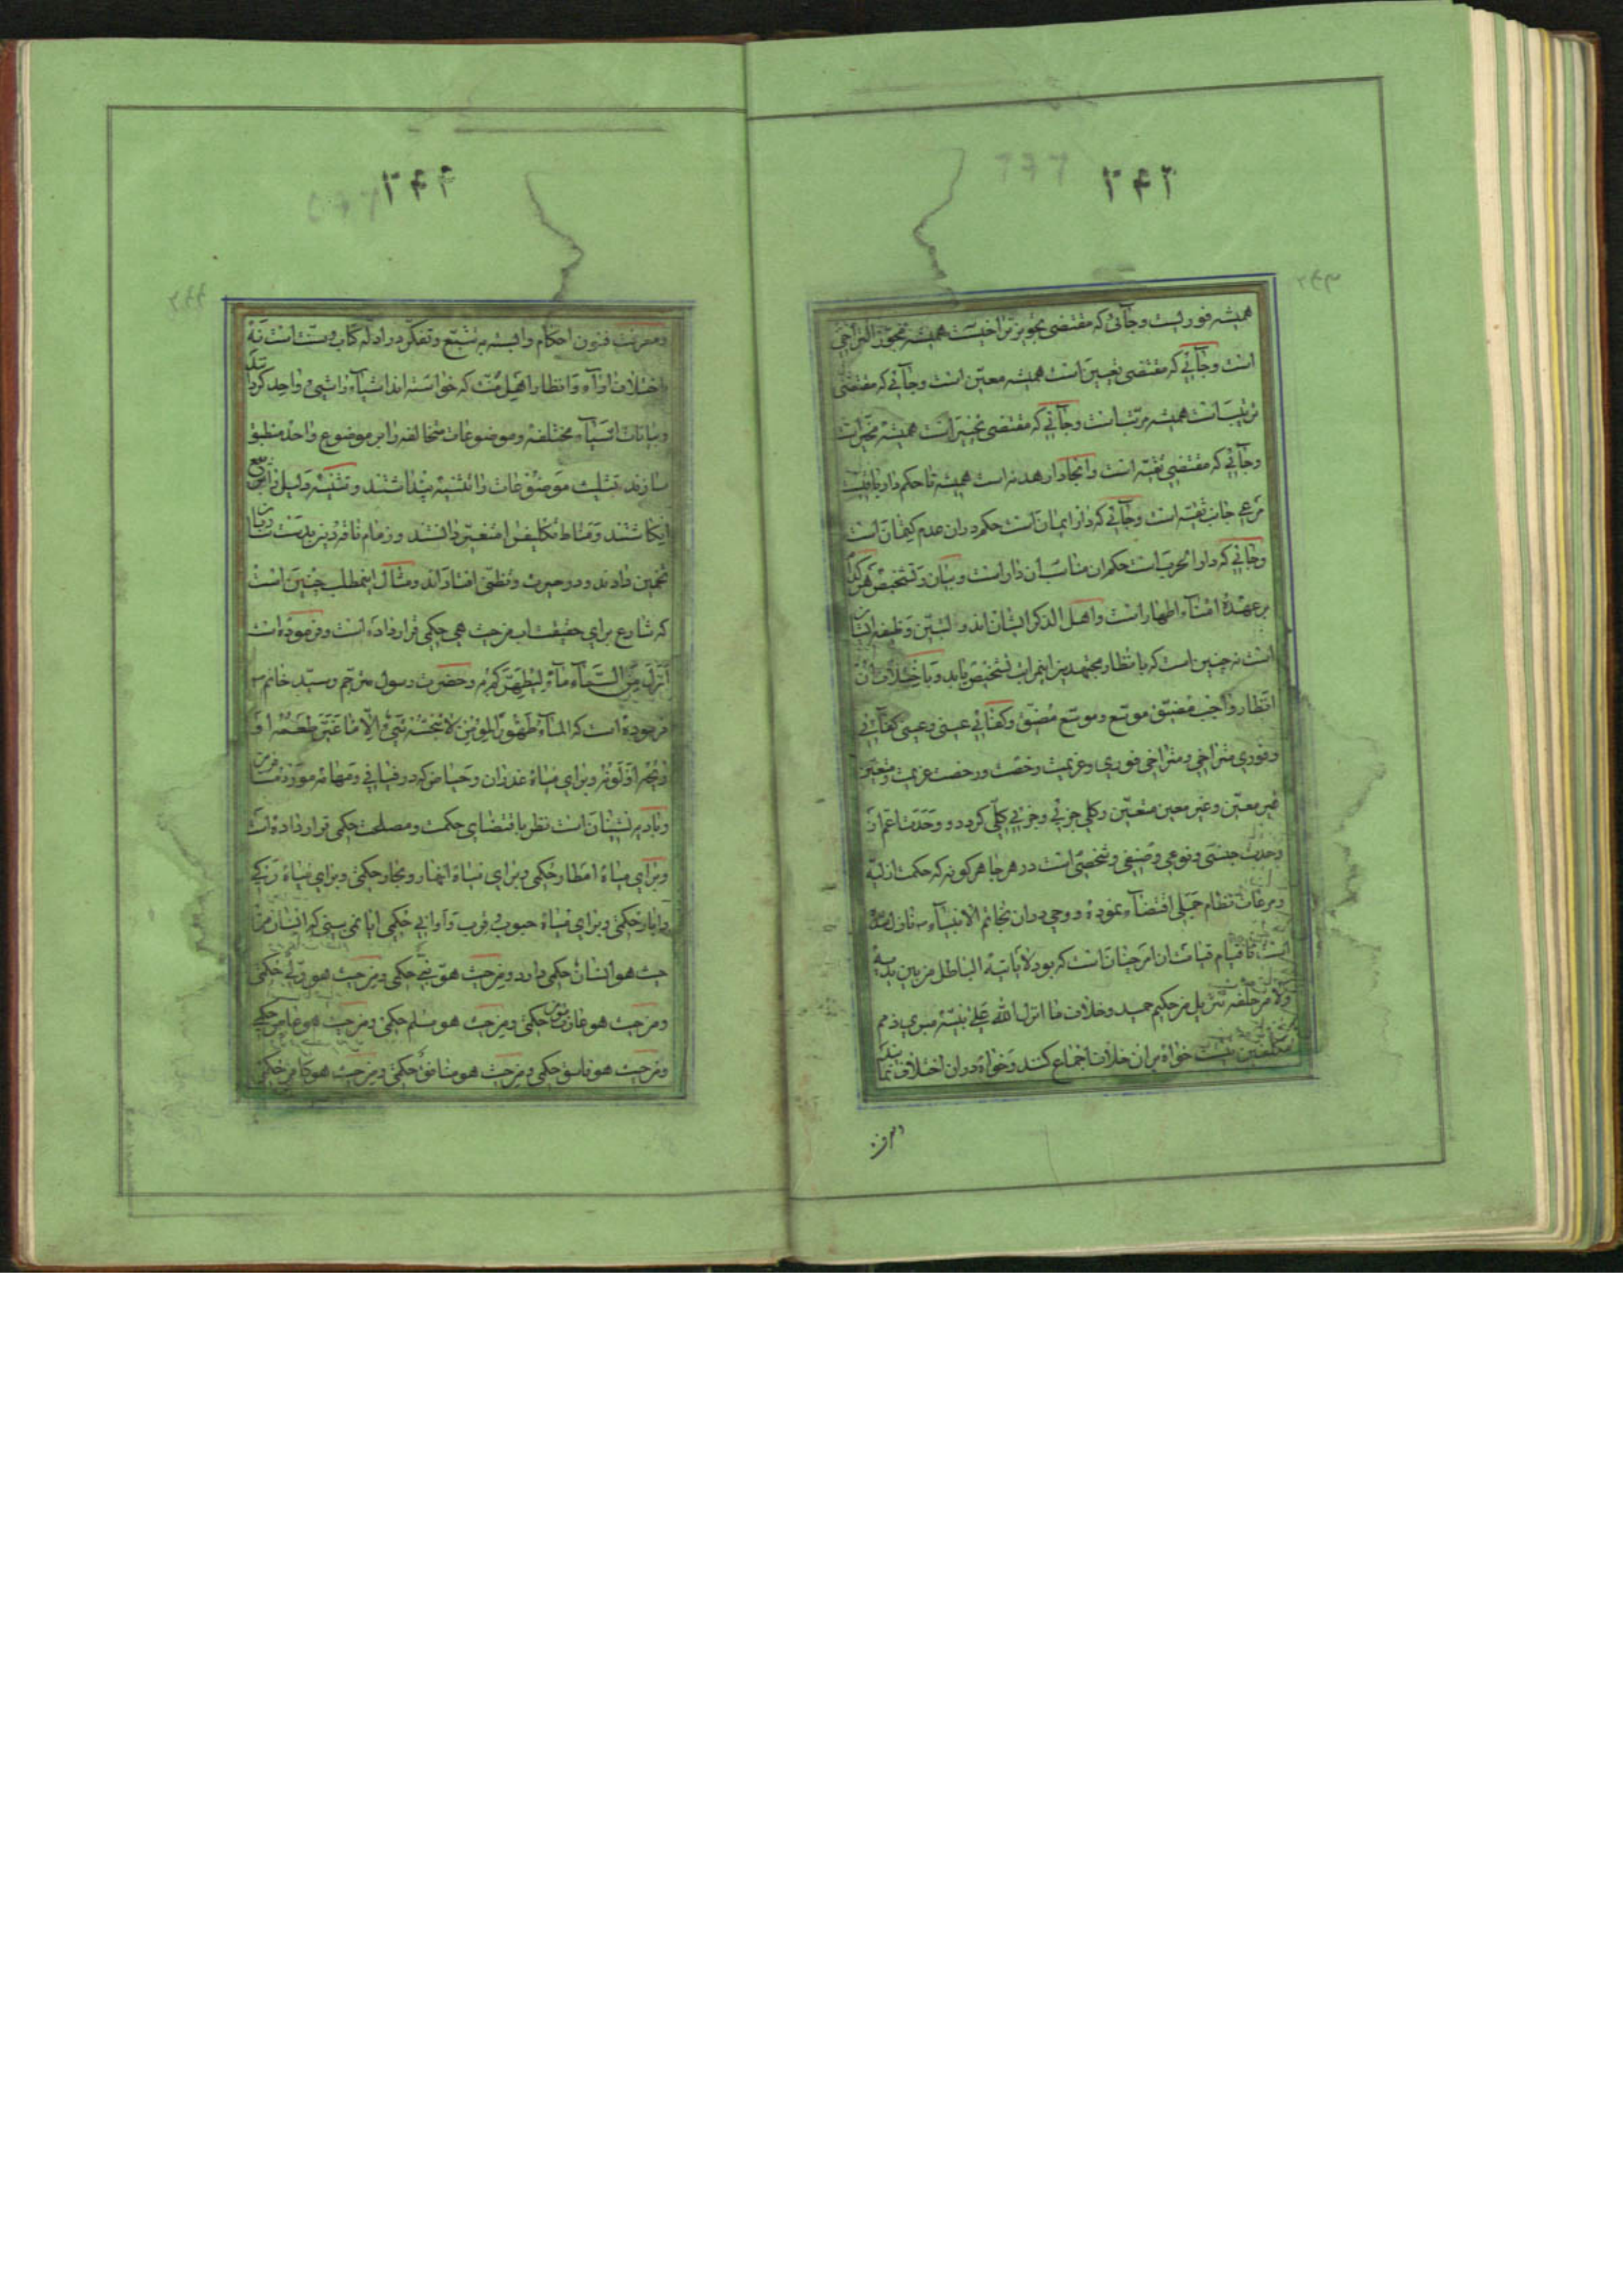 ۲۴۲
همیشه فوریست و جائی که مقتضی تجویز تراخیست همیشه مجوز التراخی
است و جائی که مقتضی تعیین است همیشه معین است و جائی که مقتضی
ترتیب است همیشه مرتب است و جائی که مقتضی تخییر است همیشه مخیر است
و جائی که مقتضی تقیه است و انجا دار هدنه است همیشه تا حکم دار باقیست
مرعی جانب تقیه است و جائی که دار ایمان است حکم در ان عدم کتمان است
و جائی که دار الحرب است حکم ان مناسب ان دار است و بیان و تشخیص هر کدام
بر عهدهٔ امناء اطهار است و اهل الذکر ایشان اند و لتبین وظیفه ایشان
است نه چنین است که با نظار مجتهدین این مراتب تشخیص یابد و با ختلاف ان
انظار واجب مضیق موسع و موسع مضیق و کفائی عینی و عینی کفائی
و فوری متراخی و متراخی فوری و عزیمت رخصت و رخصت عزیمت و متعین
غیر معین و غیر معین متعین و کلی جزئی و جزئی کلی کردد و وحدت اعم از
وحدت جنسی و نوعی و صنفی و شخصی است در هر جا هر کونه که حکمت ازلیه
و مرعات نظام جملی اقتضاء نموده و وحی در ان بخاتم الانبیاء نازل شده
است تا قیام قیامت ان امر چنان است که بود لا یاتیه الباطل من بین یدیه
ولا من خلفه تنزیل من حکیم حمید و خلاف ما انزل الله علی نبیه مبری ذمم
مکلفین نیست خواه بر ان خلاف اجماع کنند و خواه در ان اختلاف نمایند
۲۴۴
و معرفت فنون احکام وابسته به تتبع و تفکر در ادله کتاب و سنت است نه
اختلاف اراء و انظار اهل سنت که خواسته اند اشیاء را شیء واحد کرد
و بیانات اشیاء مختلفه و موضوعات متخالفه را بر موضوع واحد منطبق
سازند تثلیث موضوعات را تثنیه پنداشتند و تثنیه دلیل را
انکاشتند و مناط تکالیف را متغیر دانستند و زمام ناقه دین بدست
تخمین دادند و در حیرت و تظنی افتاده اند و مثال اینمطلب چنین است
که شارع برای حقیقت اب من حیث هی حکمی قرار داده است و فرموده است
انزل من السماء ماء لیطهرکم به و حضرت رسول مترجم و سید خاتم
فرموده است که الماء طهور لا ینجسه شیء الا ما غیر طعمه او
ریحه او لونه و برای میاه غدران و حیاض که در فیافی و مهامه مورد
و بادیه نشینان است نظر باقتضای حکمت و مصلحت حکمی قرار داده است
و برای میاه امطار حکمی و برای میاه انهار و مجار حکمی و برای میاه
و ابار حکمی و برای میاه حبوب و قرب و اوانی حکمی ایا نمی بینی که انسان من
حیث هو انسان حکمی دارد و من حیث هو نبی حکمی و من حیث هو ولی حکمی
و من حیث هو حکمی و من حیث هو مسلم حکمی و من حیث هو عاص حکمی
و من حیث هو فاسق حکمی و من حیث هو منافق حکمی و من حیث هو کافر حکمی